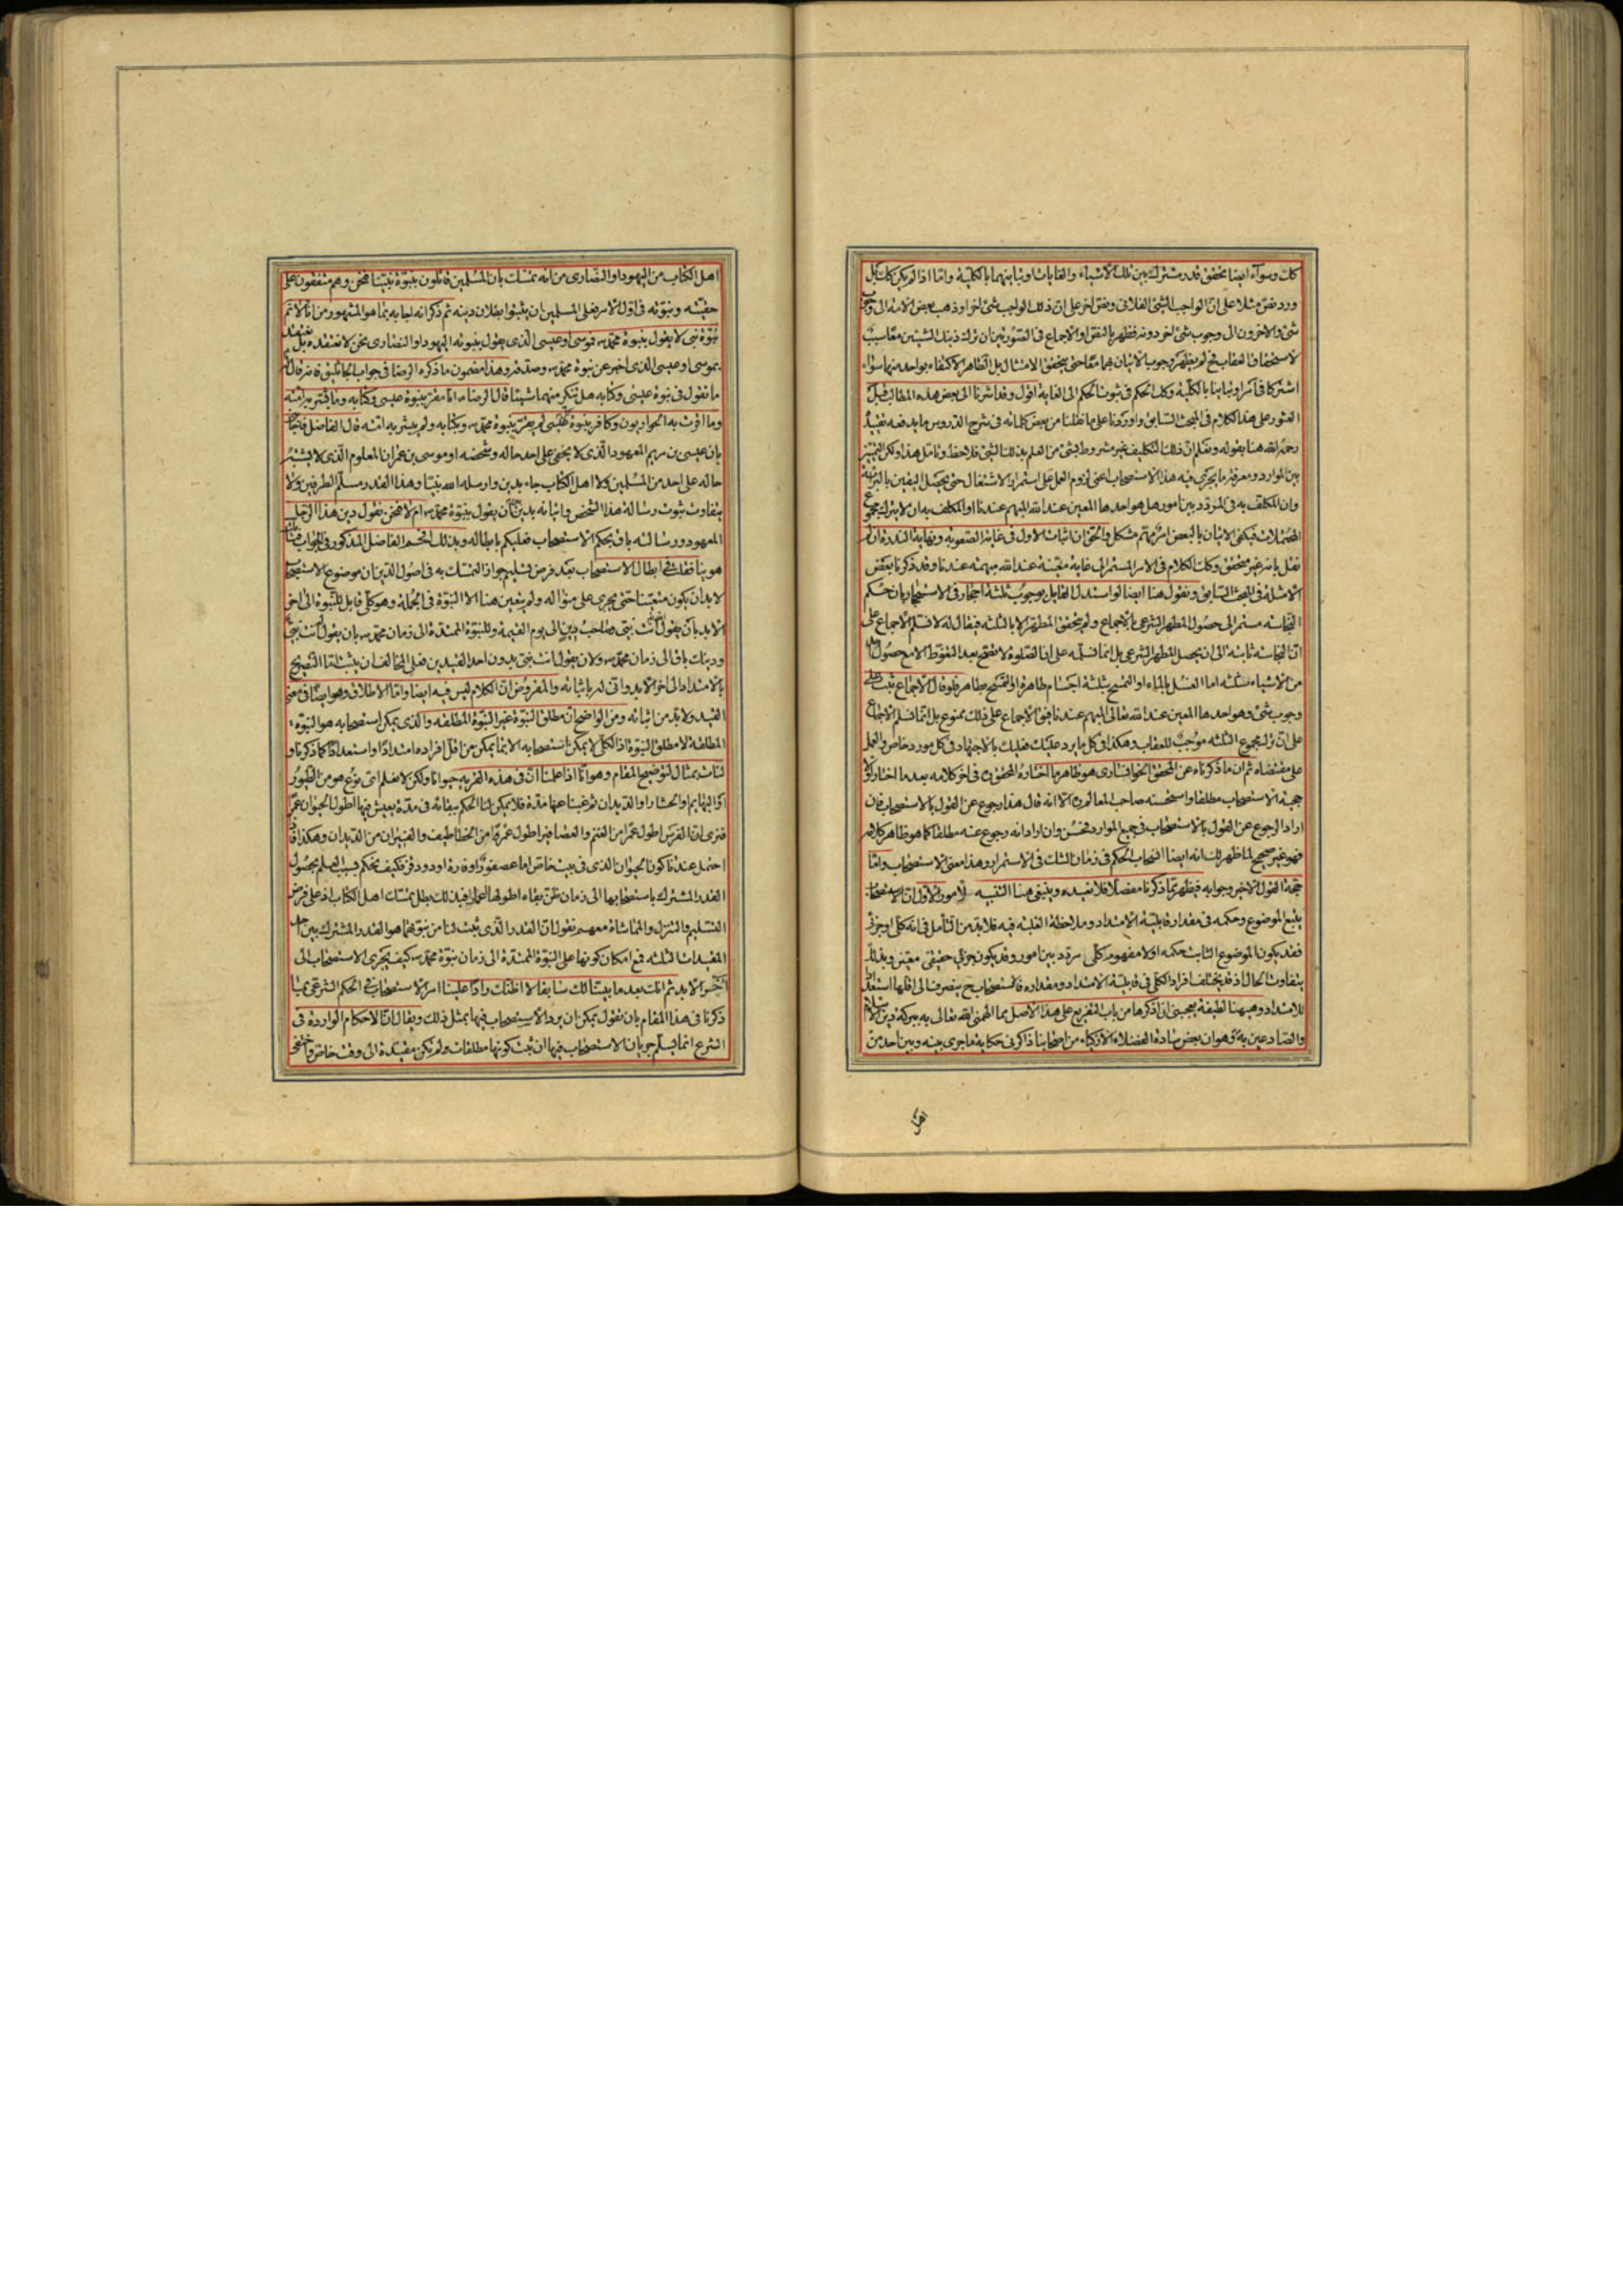 كك وسوآء ايضا يتحقق قدر مشترك بين تلك الاشياء والغايات او تباينها بالكلية واما اذا لم يكن كك بل
ورد نص مثلا على ان الواجب الشئ الفلانى ونص اخر على ان ذلك الواجب شئ اخر او ذهب بعض الامة الى وجوب
شئ والاخرون الى وجوب شئ اخر دونه فظهر بالنص او الاجماع فى الصورتين ان ترك ذينك الشيئين معا سبب
لاستحقاق العقاب فح لم يظهر وجوب الاتيان بهما معا حتى يتحقق الامتثال بل الظاهر الاكتفاء بواحد منهما سواء
اشتركا فى امر او تباينا بالكلية وكك الحكم فى ثبوت الحكم الى الغاية اقول وقد اشرنا الى بعض هذه المطالب قبل
العثور على هذا الكلام فى المبحث السابق واوردنا على ما نقلنا من بعض كلماته فى شرح الدروس ما يدفعه تقييد
رحمه الله هنا بقوله ونعلم ان ذلك التكليف غير مشروط بشئ من العلم بذلك الشئ فلاحظ وتامل هذا ولكن التمييز
بين الموارد ومعرفة ما يجرى فيه هذا الاستصحاب اعنى لزوم العمل على استمرار الاشتغال حتى يحصل اليقين بالبرائة
وان المكلف به فى المردد بين امور هل هو احدها المعين عند الله المبهم عندنا او المكلف به ان لا يترك مجموع
المحتملات فيكفى الاتيان بالبعض امر مهم مشكل والحق ان اثبات الاول فى غاية الصعوبة ونهاية الندرة ان لم
نقل بانه غير متحقق وكك الكلام فى الامر المستمر الى غاية معينة عند الله مبهمة عندنا وقد ذكرنا بعض
الامثلة فى المبحث السابق ونقول هنا ايضا لو استدل القايل بوجوب ثلثة احجار فى الاستنجاء بان حكم
النجاسة مستمر الى حصول المطهر الشرعى بالاجماع ولم يتحقق المطهر الا بالثلثة فيقال له لا نسلم الاجماع على
ان النجاسة ثابتة الى ان يحصل المطهر الشرعى بل انما نسلمه على ان الصلوة لا تصح بعد التغوط الا مع حصول احد
من الاشياء الثلثة اما الغسل بالماء او التمسح بثلثة اجسام طاهرة او التمسح بطاهر فلو قال الاجماع ثبت على
وجوب شئ وهو احدها المعين عند الله تعالى المبهم عندنا فنقول الاجماع على ذلك ممنوع بل انما نسلم الاجماع
على ان ترك مجموع الثلثة موجب للعقاب وهكذا فى كل ما يرد عليك فعليك بالاجتهاد فى كل مورد خاص والعمل
على مقتضاه ثم ان ما ذكرناه عن المحقق الخوانسارى هو ظاهر ما اختاره المحقق ره فى اخر كلامه بعد ما اختار اولا
حجية الاستصحاب مطلقا واستحسنه صاحب المعالم ره الا انه قال هذا رجوع عن القول بالاستصحاب فان
اراد الرجوع عن القول بالاستصحاب فى جميع الموارد فحسن وان اراد انه رجوع عنه مطلقا كما هو ظاهر كلامه
فهو غير صحيح لما ظهر لك انه ايضا انسحاب الحكم فى زمان الشك فى الاستمرار وهذا معنى الاستصحاب واما
حجة القول الاخير وجوابه فيظهر مما ذكرنا مفصلا فلا نعيده وينبغى هنا التنبيه لامور الاول ان الاستصحاب
يتبع الموضوع وحكمه فى مقدار قابلية الامتداد وملاحظة الغلبة فيه فلا بد من التامل فى انه كلى او جزئى
فقد يكون الموضوع الثابت حكمه اولا مفهوم كلى مردد بين امور وقد يكون جزئى حقيقى معين وبذلك
يتفاوت الحال اذ قد يختلف افراد الكلى فى قابلية الامتداد ومقداره فالاستصحاب ح ينصرف الى اقلها استعدادا
للامتداد وههنا لطيفة يعجبنى ان اذكرها من باب التفريع على هذا الاصل مما الهمنى الله تعالى به ببركة دين الاسلام
والصادعين به ع وهو ان بعض سادة الفضلاء الاذكياء من اصحابنا ذاكرنى حكاية ما جرى بينه وبين احد من
اهل
اهل الكتاب من اليهود او النصارى من انه تمسك بان المسلمين قائلون بنبوة نبينا فنحن وهم متفقون على
حقيته ونبوته فى اول الامر فعلى المسلمين ان يثبتوا بطلان دينه ثم ذكر انه اجابه بما هو المشهور من انا لا نسلم
نبوة نبى لا يقول بنبوة محمد ص فموسى او عيسى الذى يقول بنبوته اليهود او النصارى نحن لا نعتقده بل نعتقد
بموسى او عيسى الذى اخبر عن نبوة محمد ص وصدقه وهذا مضمون ما ذكره الرضا فى جواب الجاثليق فانه قال له
ما تقول فى نبوة عيسى وكتابه هل تنكر منهما شيئا قال الرضا ع انا مقر بنبوة عيسى وكتابه وما بشر به امته
وما اقرت به الحواريون وكافر بنبوة عيسى لم يقر بنبوة محمد ص وبكتابه ولم يبشر به امته قال الفاضل فاجابنى
بان عيسى بن مريم المعهود الذى لا يخفى على احد حاله وشخصه او موسى بن عمران المعلوم الذى لا يشتبه
حاله على احد من المسلمين ولا اهل الكتاب جاء بدين وارسله الله نبيا وهذا القدر مسلم الطرفين ولا
يتفاوت ثبوت رسالة هذا الشخص واتيانه بدين بين ان يقول بنبوة محمد ص ام لا فنحن نقول دين هذا الرجل
المعهود ورسالته باق بحكم الاستصحاب فعليكم بابطاله وبذلك افحم الفاضل المذكور فى الجواب فتامل
هوينا فقلت فى ابطال الاستصحاب بعد فرض تسليم جواز التمسك به فى اصول الدين ان موضوع الاستصحاب
لا بد ان يكون متعينا حتى يجرى على منواله ولم يتعين هنا الا النبوة فى الجملة وهو كلى قابل للنبوة الى اخر
الابد بان يقول انت نبى وصاحب دين الى يوم القيمة وللنبوة الممتدة الى زمان محمد ص بان يقول انت نبى
ودينك باق الى زمان محمد ص ولان يقول انت نبى بدون احد القيدين فعلى المخالف ان يثبت اما التصريح
بالامتداد الى اخر الابد وانى له باثباته والمفروض ان الكلام ليس فيه ايضا واما الاطلاق وهو ايضا فى معنى
القيد ولا بد من اثباته ومن الواضح ان مطلق النبوة غير النبوة المطلقة والذى يمكن استصحابه هو النبوة
المطلقة لا مطلق النبوة اذ الكلى لا يمكن استصحابه الا بما يمكن من اقل افراده امتدادا واستعدادا كما ذكرنا ولنات
لك بمثال لتوضيح المقام وهو انا اذا علمنا ان فى هذه القرية حيوانا ولكن لا نعلم اى نوع هو من الطيور
او البهايم او الحشار او الديدان ثم غبنا عنها مدة فلا يمكن لنا الحكم ببقائه فى مدة يعيش فيها اطول الحيوان عمرا
فترى ان الفرس اطول عمرا من الغنم والعصافير اطول عمرا من الخطاطيف والفيران من الديدان وهكذا فاذا
احتمل عندنا كون الحيوان الذى فى بيت خاص اما عصفورا او فارة او دودة قز فكيف نحكم بسبب العلم بحصول
القدر المشترك باستصحابها الى زمان ظن بقاء اطولها عمرا فبذلك بطل تمسك اهل الكتاب اذ على فرض
التسليم والتنزل والمماشاة معهم نقول ان القدر الذى ثبت لنا من نبوتهما هو القدر المشترك بين احد
المقيدات الثلثة فمع امكان كونها على النبوة الممتدة الى زمان نبوة محمد ص كيف يجرى الاستصحاب الى
اخر الابد ثم انك بعد ما بينا لك سابقا لا اظنك رادا علينا امر الاستصحاب فى الحكم الشرعى بما
ذكرنا فى هذا المقام بان تقول يمكن ان يرد الاستصحاب فيها بمثل ذلك ويقال ان الاحكام الواردة فى
الشرع انما يسلم جريان الاستصحاب فيها ان ثبت كونها مطلقات ولم تكن مقيدة الى وقت خاص واختفى